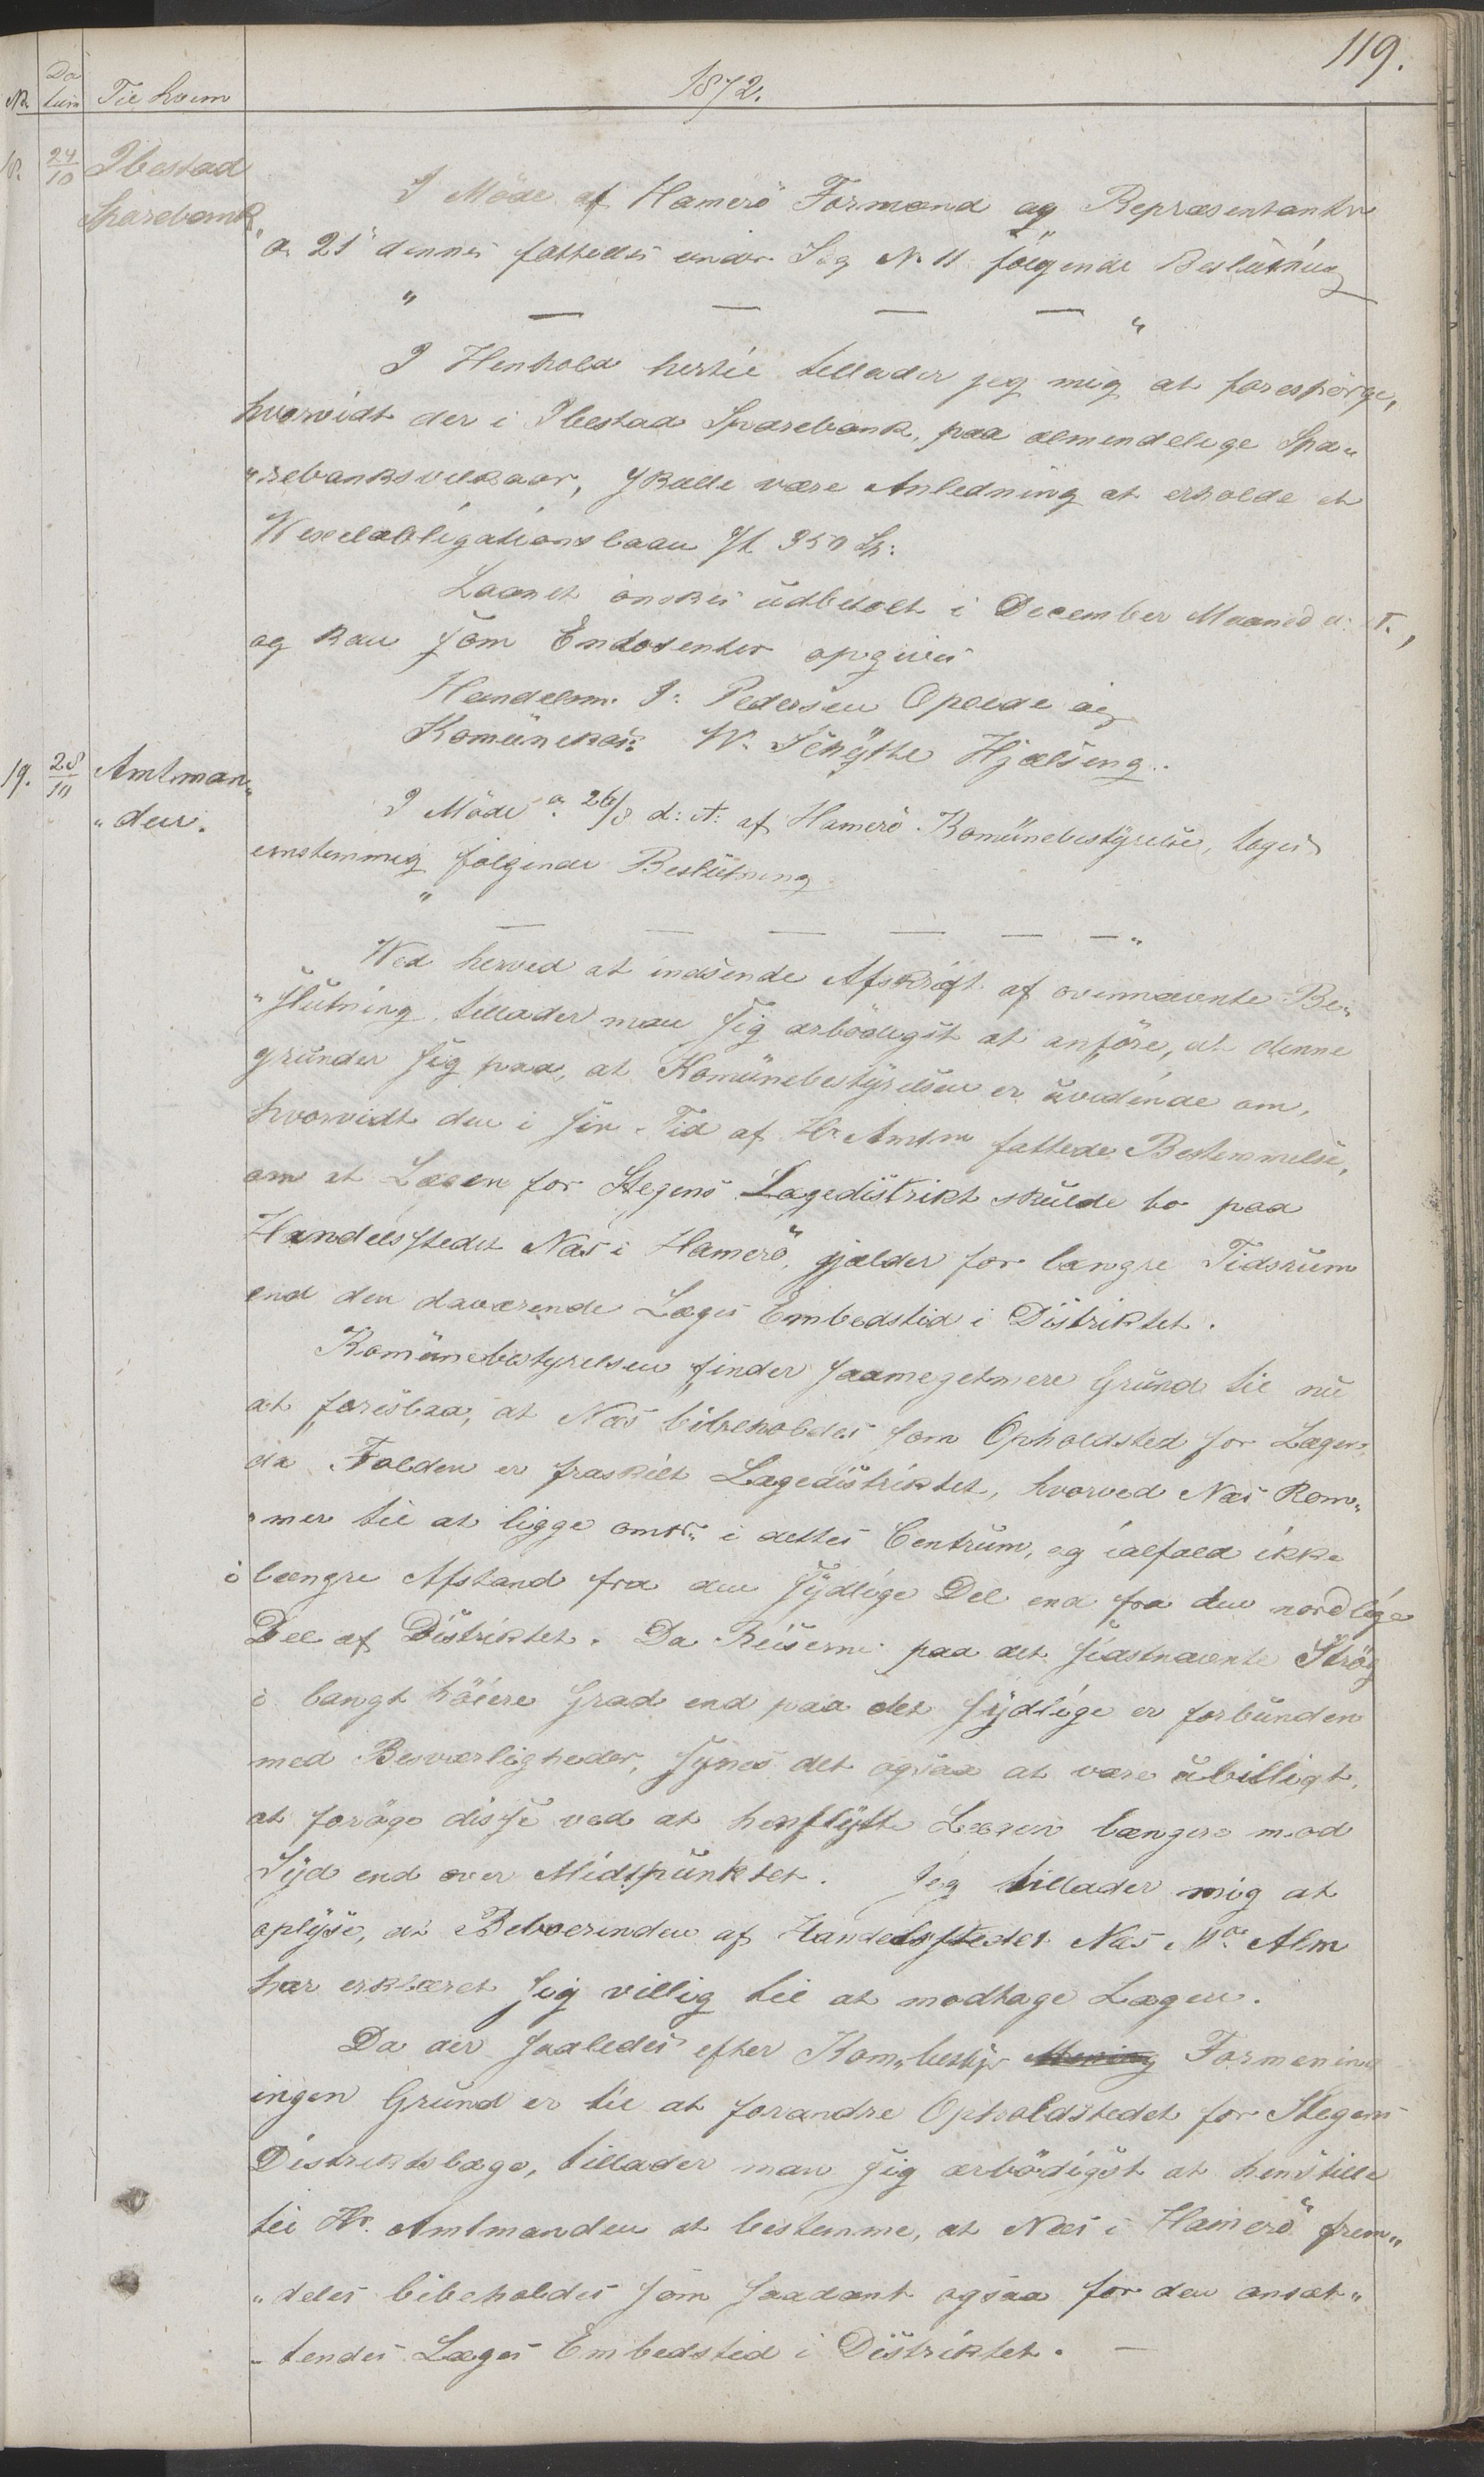 119.
No. Datum Til hvem 1872.
18. 24/10 Ibestad
Sparebank,
I Möde af Hamerö Formænd og Repræsentantr
d. 21 dennes fattedes under Sag No 11 følgende Beslutning
" — — — — "
I Henhold hertil tillader jeg mig at forespörge,
hvorvidt der i Ibestad Sparebank, paa almindelige Spa„
„rebanksvilkaar, skulle være Anledning at erholde et
Wexelobligationslaan st. 350 Sp:
Laanet önskes udbetalt i December Maaned d: A.,
og kan som Endosenter opgives
Handelsm. J: Pedersen Opeide og
Komünekas: W. Schytte Hjælseng.
19. 28/10 Amtman„
„den.
I Möde d. 26/8 d: A: af Hamerö Komünebestyrelse, toges
enstemmig følgende Beslütning
" — — — — — — "
Ved herved at indsende Afskrift af ovennævnte Be„
„slutning, tillader man sig ærbödigst at anföre, at denne
grunder sig paa, at Komünebestyrelsen er uvidende om,
hvorvidt den i sin Tid af Hr Amtm fattede Bestemmelse,
om at Lægen for Stegens Lægedistrikt skulde bo paa
Handelsstedet Næs i Hamerö, gjælder for længre Tidsrum
end den daværende Læges Embedstid i Distriktet.
Komünebestyrelsen finder saamegetmere Grund til nu
at foreslaa, at Næs bibeholdes som Opholdsted for Lægen,
da Folden er fraskilt Lægedistriktet, hvorved Næs kom„
„mer til at ligge omtr. i dettes Centrum, og ialfald ikke
i længre Afstand fra den sydlige Del end fra den nordlige
Del af Distriktet. Da Reiserne paa det sidstnævnte Strög
i langt höiere Grad end paa det sydlige er forbunden
med Besværligheder, synes det ogsaa at være ubilligt,
at foröge disse ved at henflytte Lægen længere mod
Syd end over Midtpunktet. Jeg tillader mig at
oplyse, at Beboerinden af Handelsstedet Næs Mde Alm
har erklæret sig villig til at modtage Lægen.
Da der saaledes efter Kom„bestyr Mening Formening
ingen Grund er til at forandre Opholdstedet for Stegens
Distriktslæge, tillader man sig ærbödigst at henstille
til Hr. Amtmanden at bestemme, at Næs i Hamerö frem„
„deles bibeholdes som saadant ogsaa for den ansæt„
„tendes Læges Embedstid i Distriktet. —